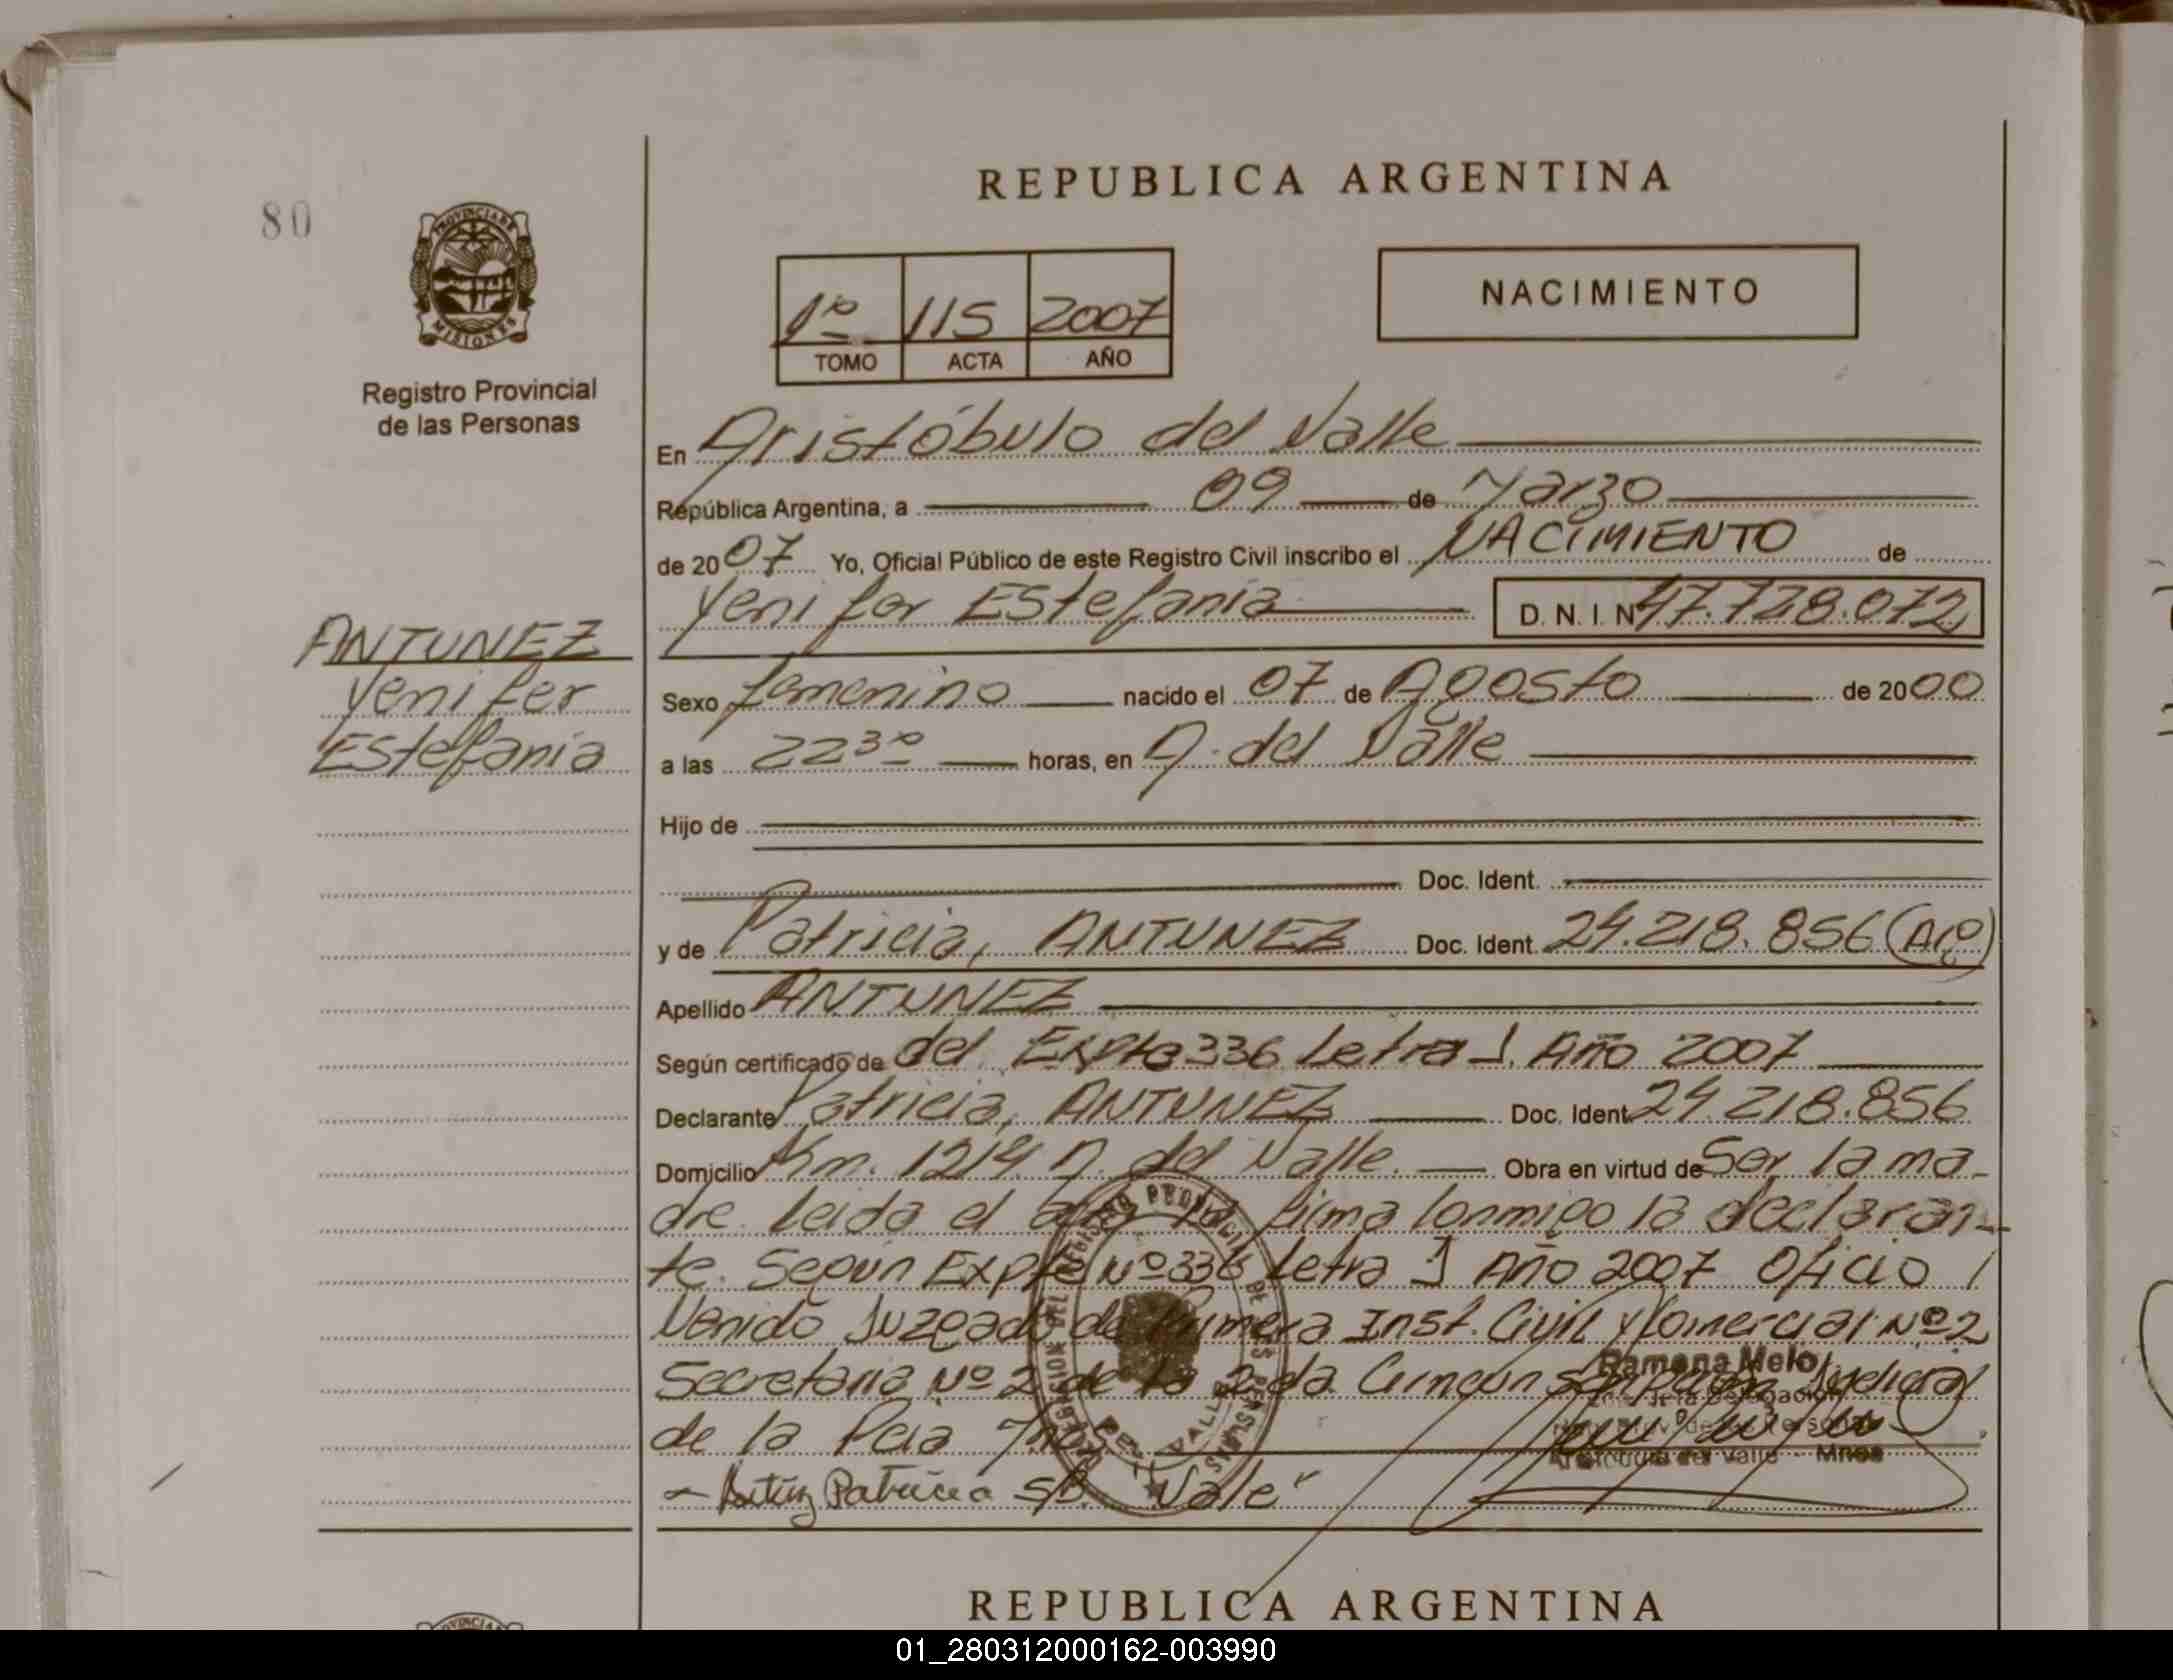 REPUBLICA ARGENTINA
80
PROVINCIA DE
MISIONES
Registro Provincial
de las Personas
1º 115 2007
TOMO ACTA AÑO
NACIMIENTO
En Aristóbulo del Valle
República Argentina, a 09 de Marzo
de 2007 Yo, Oficial Público de este Registro Civil inscribo el NACIMIENTO de
Yenifer Estefanía D. N. I. Nº 47.728.072
ANTUNEZ
Yenifer
Estefanía
Sexo femenino nacido el 07 de Agosto de 2000
a las 22 30 horas, en A. del Valle
Hijo de
Doc. Ident.
y de Patricia, ANTUNEZ Doc. Ident. 24.218.856
Apellido ANTUNEZ
Según certificado de del Expte 336 Letra J. Año 2007
Declarante Patricia, ANTUNEZ Doc. Ident. 24.218.856
Domicilio Km. 1214 A. del Valle. Obra en virtud de Ser la ma-
dre. Leida el acta la firma conmigo la declaran-
te. Según Expte Nº 336 Letra J Año 2007 Oficio
Venido Juzgado de Primera Inst. Civil y Comercial Nº 2
Secretaria Nº 2 de la 2da Judicial
de la Pcia
Patricia Vale
Ramona Melo
Aristobulo del Valle - Mnes
REPUBLICA ARGENTINA
01_280312000162-003990